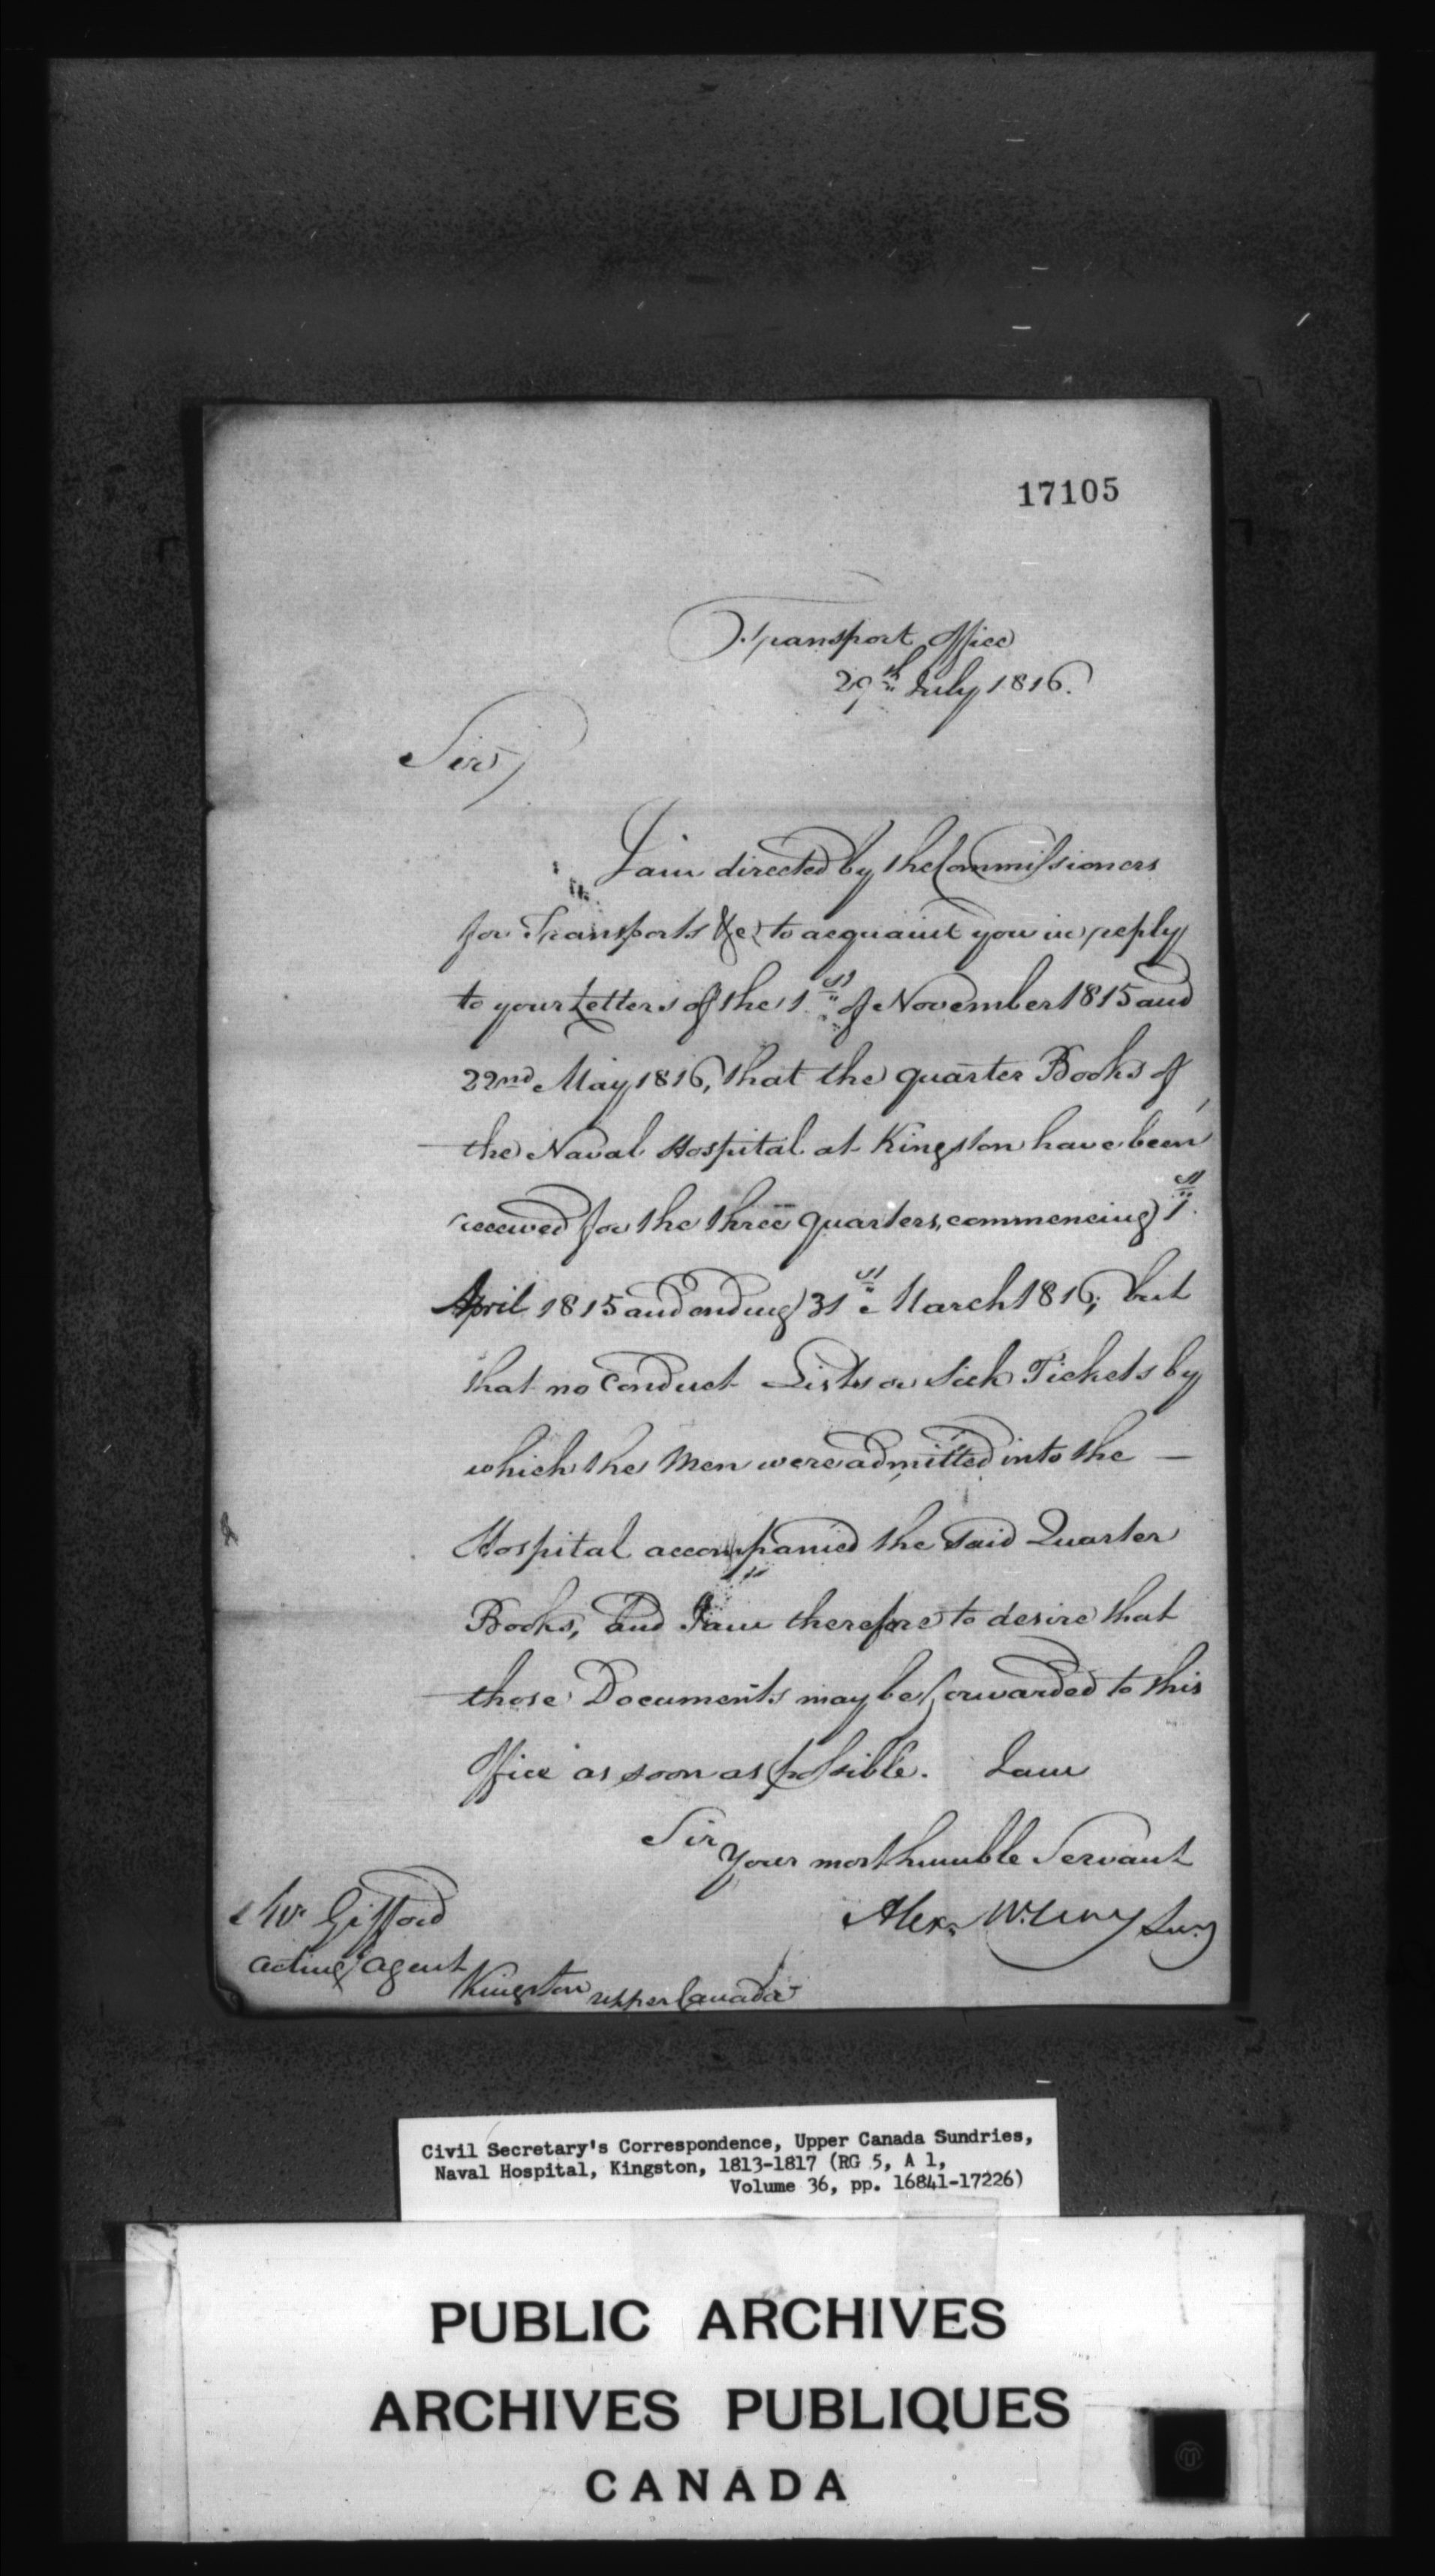 17105
Transport Office
29th July 1816.
Sir,
I am directed by the Commissioners
for Transports &c. to acquaint you in reply
to your Letters of the 1st of November 1815 and
22nd May 1816, that the quarter Books of
the Naval Hospital at Kingston have been
received for the three quarters, commencing 1st
April 1815 and ending 31st March 1816; but
that no Conduct Lists or Sick Tickets by
which the Men were admitted into the —
Hospital accompanied the said Quarter
Books, and I am therefore to desire that
those Documents may be forwarded to this
Office as soon as possible. I am
Sir
Your most humble Servant
Alexr
Mr Gifford
acting Agent
Kingston upper Canada
Civil Secretary's Correspondence, Upper Canada Sundries,
Naval Hospital, Kingston, 1813-1817 (RG 5, A 1,
Volume 36, pp. 16841-17226)
PUBLIC ARCHIVES
ARCHIVES PUBLIQUES
CANADA